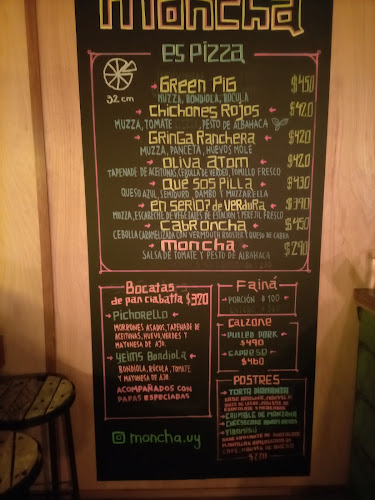 moncha
es pizza
32 cm
Green Pig $450
MUZZA, BONDIOLA, RÚCULA
Chichones Rojos $420
MUZZA, TOMATE PESTO DE ALBAHACA
Gringa Ranchera $420
MUZZA, PANCETA, HUEVOS MOLE
Oliva Atom $420
TAPENADE DE ACEITUNAS, CEBOLLA DE VERDEO, TOMILLO FRESCO
Qué sos Pilla $430
QUESO AZUL, SEMIDURO, DAMBO Y MUZZARELLA
en serio? de verdura $390
MUZZA, ESCABECHE DE VEGETALES DE ESTACION Y PEREJIL FRESCO
Cabroncha $450
CEBOLLA CARAMELIZADA CON VERMOUTH ROOSTER Y QUESO DE CABRA
moncha $290
SALSA DE TOMATE Y PESTO DE ALBAHACA
Bocatas
de pan ciabatta $320
Pichorello
MORRONES ASADOS, TAPENADE DE
ACEITUNAS, HUEVO, VERDES Y
MAYONESA DE AJO.
Yelms Bondiola
BONDIOLA, RÚCULA, TOMATE
Y MAYONESA DE AJO.
ACOMPAÑADOS CON
PAPAS ESPECIADAS
moncha.uy
Fainá
PORCIÓN $100
Calzone
PULLED PORK
$490
CAPRESO
$460
POSTRES
TORTA DIAMANTA
CRUMBLE DE MANZANA
CHEESECAKE
TIRAMISÚ
$220